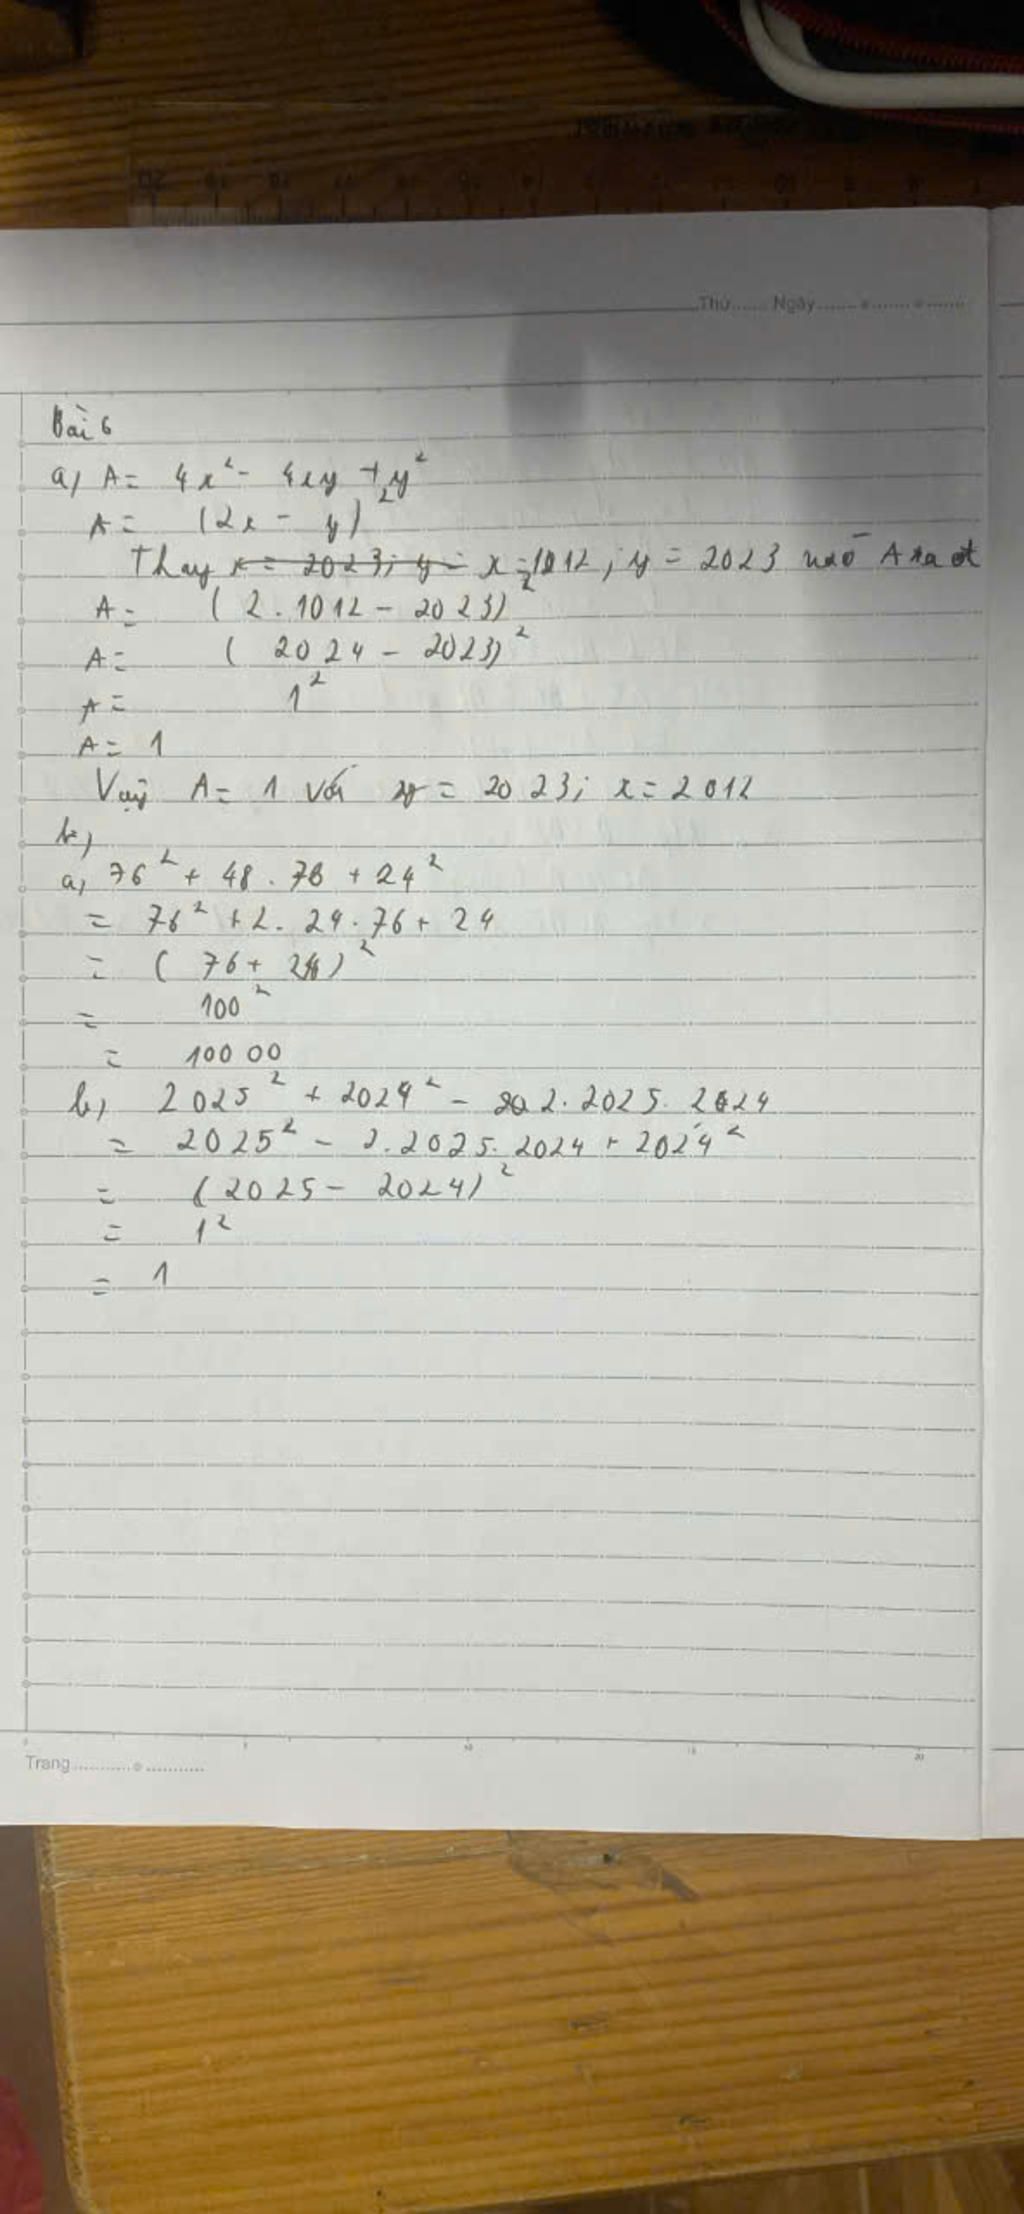 Thứ....... Ngày
Bài 6
a) A = 4x² - 4xy + y²
A = (2x - y)²
Thay x = 2023; y = x = 1012; y = 2023 vào A ta đt
A = (2 . 1012 - 2023)²
A = (2024 - 2023)²
A = 1²
A = 1
Vậy A = 1 với y = 2023; x = 2012
b)
a) 76² + 48 . 76 + 24²
= 76² + 2 . 24 . 76 + 24
= (76 + 24)²
= 100²
= 10000
b) 2025² + 2024² - 2 . 2025 . 2024
= 2025² - 2 . 2025 . 2024 + 2024²
= (2025 - 2024)²
= 1²
= 1
Trang